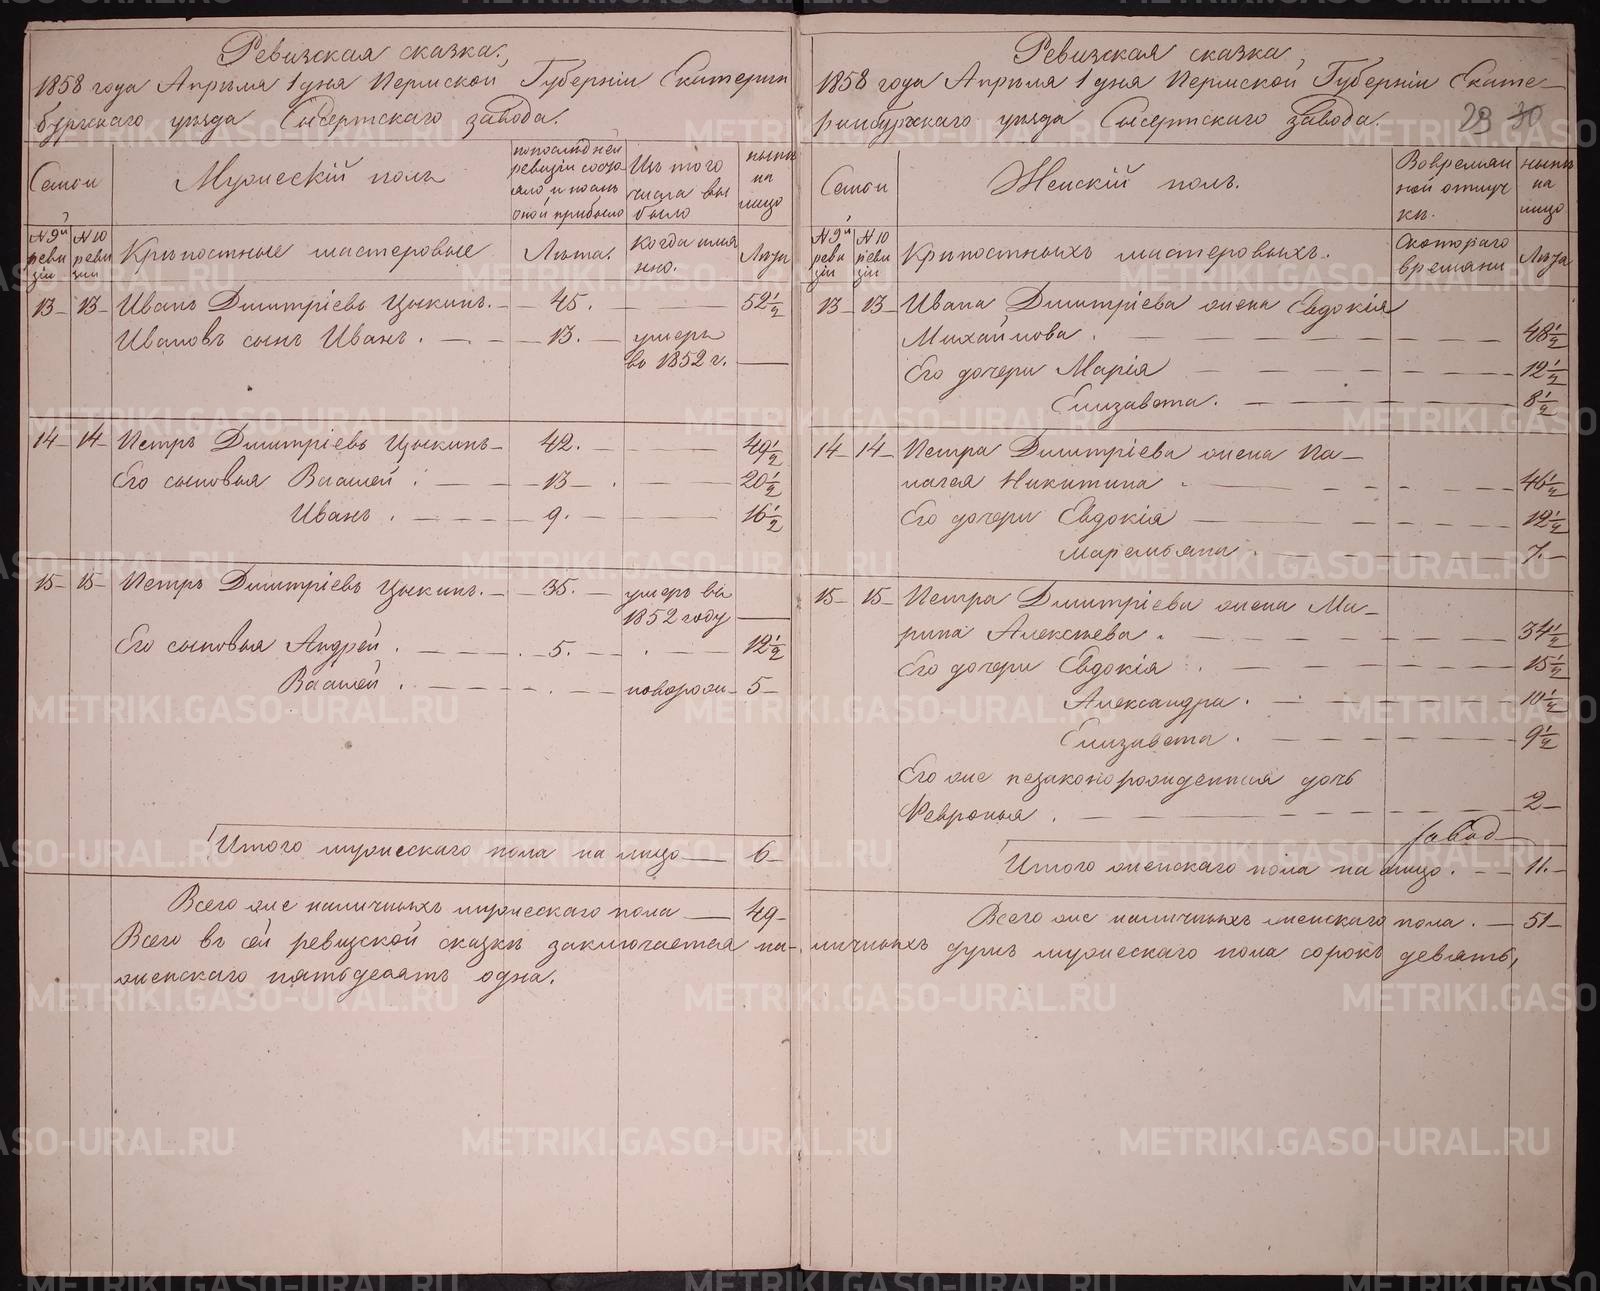 Ревизская сказка,
1858 года Апрѣля 1 дня Пермской Губерніи Екатерин
бургскаго уѣзда Сысертскаго завода.
Семьи
Мужескій полъ
по последней
ревизіи состо
яло и послѣ
оной прибыло
Изъ того
числа вы
было
нынѣ
на
лицо
№ 9й
реви
зіи
№ 10
реви
зіи
Крѣпостные мастеровые
Лѣта.
когда имя
нно.
Лѣта
13 13 Иванъ Димитріевъ Цыкинъ. 45. 52 1/2
Ивановъ сынъ Иванъ. 13. умеръ
въ 1852 г.
14 14 Петръ Димитріевъ Цыкинъ 42. 49 1/2
Его сыновья Василей 13 20 1/2
Иванъ. 9. 16 1/2
15 15 Петръ Димитріевъ Цыкинъ. 35. умеръ въ
1852 году
Его сыновья Андрей. 5. 12 1/2
Василей. новорож 5
Итого мужескаго пола на лицо 6
Всего же наличныхъ мужескаго пола 49
Всего въ сей ревизской сказкѣ заключается на-
женскаго пятьдесятъ одна.
Ревизская сказка,
1858 года Апрѣля 1 дня Пермской Губерніи Екате-
ринбургскаго уѣзда Сысертскаго завода.
29 30
Семьи
Женскій полъ.
Вовремян
ной отлуч
кѣ.
нынѣ
на
лицо
№ 9й
реви
зіи
№ 10
реви
зіи
Крѣпостныхъ мастеровыхъ.
Скотораго
времяни
Лѣта
13 13 Ивана Димитріева жена Евдокія
Михайлова. 48 1/2
Его дочери Марія 12 1/2
Елизавета. 8 1/2
14 14 Петра Димитріева жена Па-
лагея Никитина 46 1/2
Его дочери Евдокія 12 1/2
Маремьяна. 7.
15 15 Петра Димитріева жена Ма-
рина Алексѣева. 34 1/2
Его дочери Евдокія 15 1/2
Александра. 10 1/2
Елизавета. 9 1/2
Его же незаконорожденная дочь
Февронья. 2
Итого женскаго пола на лицо. 11.
Всего же наличныхъ женскаго пола. 51
личныхъ душъ мужескаго пола сорокъ девять,
METRIKI.GASO-URAL.RU